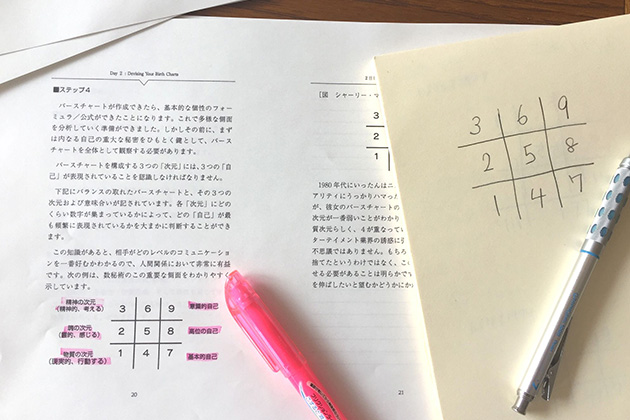 Day 2 : Devising Your Birth Charts
■ステップ4
バースチャートが作成できたら、基本的な個性のフォー
ミュラ／公式ができたことになります。これで多様な側面
を分析していく準備ができました。しかしその前に、まず
は内なる自己の重大な秘密をひもとく鍵として、バース
チャートを全体として観察する必要があります。
バースチャートを構成する3つの「次元」には、3つの「自
己」が表現されていることを認識しなければなりません。
下記にバランスの取れたバースチャートと、その3つの
次元および意味合いが記されています。各「次元」にどの
くらい数字が集まっているかによって、どの「自己」が最
も頻繁に表現されているかを大まかに判断することができ
ます。
この知識があると、相手がどのレベルのコミュニケーショ
ンを一番好むかわかるので、人間関係において非常に有益
です。次の例は、数秘術のこの重要な側面をわかりやすく
示しています。
精神の次元
(精神的、考える)
3 6 9
意識的自己
魂の次元
(霊的、感じる)
2 5 8
高位の自己
物質の次元
(現実的、行動する)
1 4 7
基本的自己
20
［図 シャーリー・マ
3
2
1
1980年代にいったんはニ
アリティにうっかりハマった
が、彼女のバースチャートの
次元が一番弱いことがわかり
質次元らしく、4が重なってい
ターテイメント業界の誘惑に引
不思議ではありません。もちろ
捨てたというわけではなく、こ
せる必要があることは明らかで
を伸ばしたいと望むかどうかに
21
3 6 9
2 5 8
1 4 7